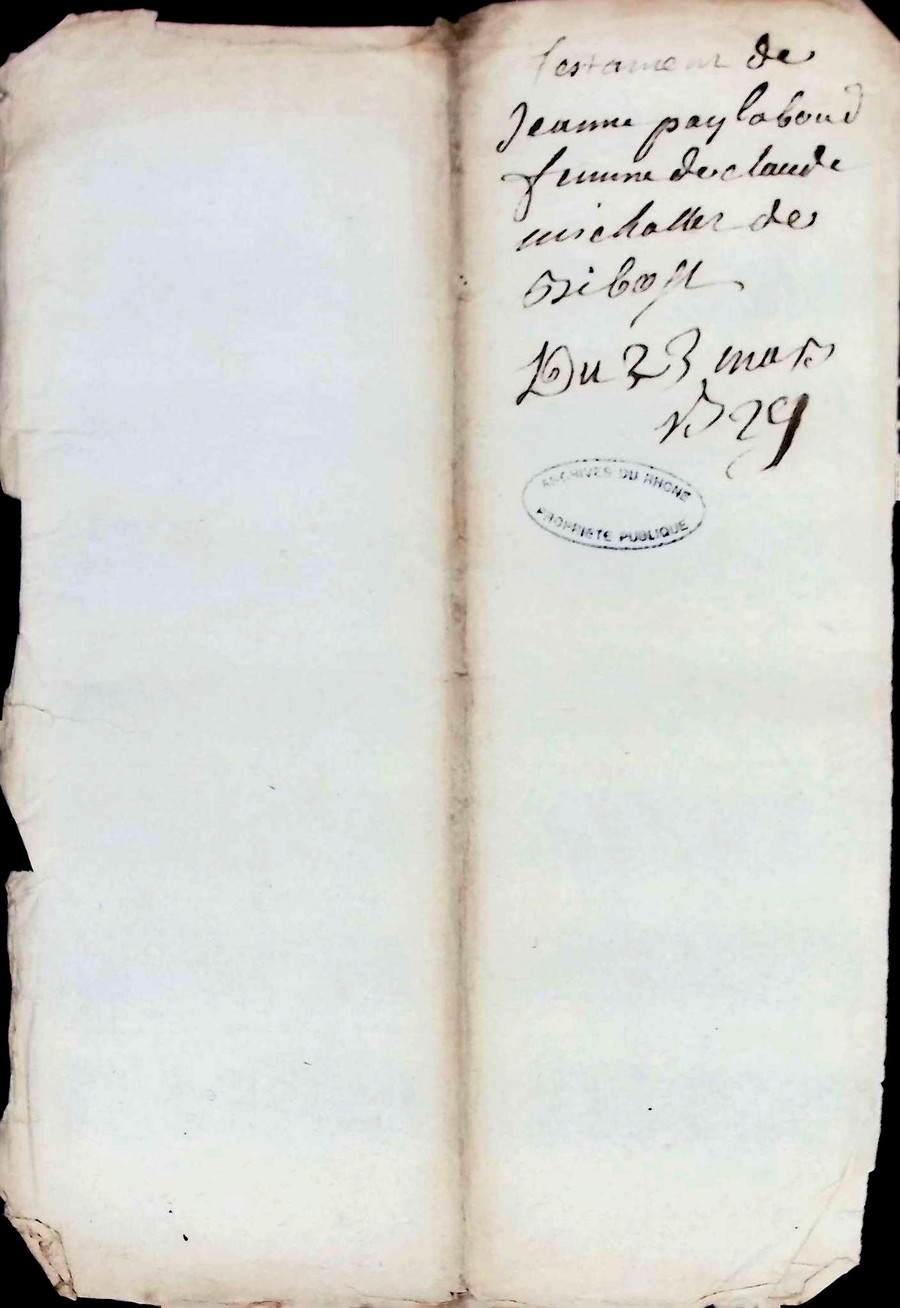 testament de
Jeanne paylaboud
femme de claude
michallet de
Ribost
Du 23 mars
1729
ARCHIVES DU RHONE
PROPRIETE PUBLIQUE